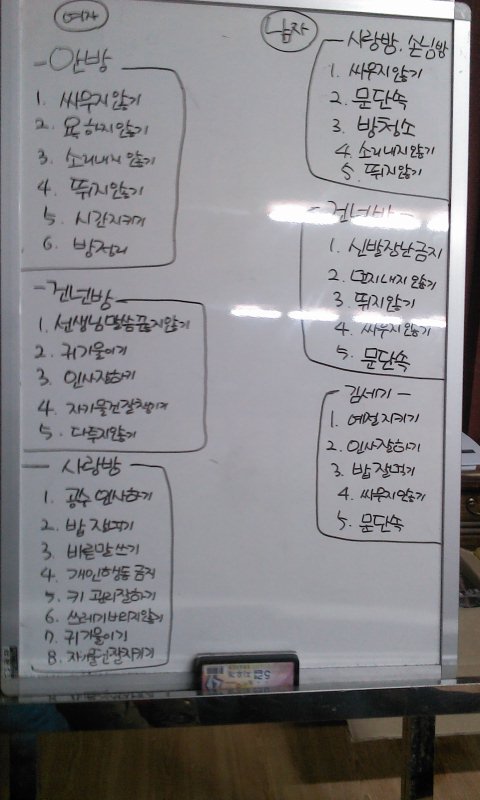 여자
- 안방 -
1. 싸우지 않기
2. 욕 하지 않기
3. 소리내지 않기
4. 뛰지 않기
5. 시간 지키기
6. 방정리
- 건넌방 -
1. 선생님 말씀 끊지 않기
2. 귀 기울이기
3. 인사 잘하기
4. 자기물건 잘 챙기기
5. 다투지 않기
- 사랑방 -
1. 공수 인사하기
2. 밥 잘먹기
3. 바른말 쓰기
4. 개인행동 금지
5. 키 관리 잘하기
6. 쓰레기 버리지 않기
7. 귀 기울이기
8. 자기물건 잘 지키기
남자
- 사랑방, 손님방
1. 싸우지 않기
2. 문단속
3. 방청소
4. 소리내지 않기
5. 뛰지 않기
- 건넌방 -
1. 신발장난 금지
2. 먼지내지 않기
3. 뛰지 않기
4. 싸우지 않기
5. 문단속
김세기 -
1. 예절 지키기
2. 인사 잘하기
3. 밥 잘먹기
4. 싸우지 않기
5. 문단속